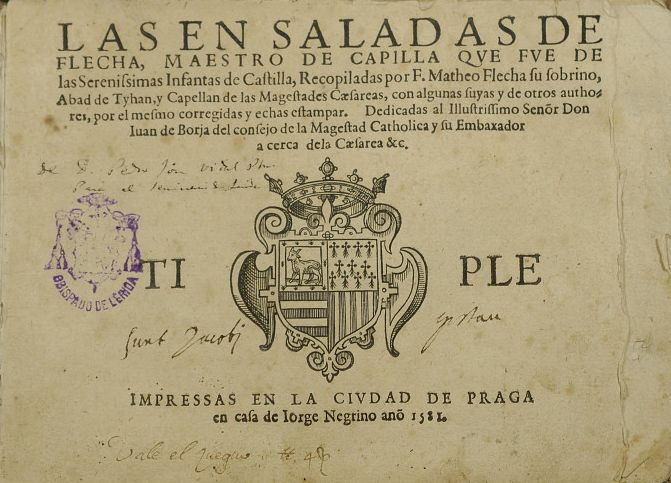 LAS EN SALADAS DE
FLECHA, MAESTRO DE CAPILLA QVE FVE DE
las Sereniſsimas Infantas de Caſtilla, Recopiladas por F. Matheo Flecha ſu ſobrino,
Abad de Tyhan, y Capellan de las Mageſtades Cæſareas, con algunas ſuyas y de otros autho-
res, por el meſmo corregidas y echas eſtampar. Dedicadas al Illuſtriſsimo Senõr Don
Iuan de Borja del conſejo de la Mageſtad Catholica y ſu Embaxador
a cerca dela Cæſarea &c.
de D. Pedro
Para el
OBISPADO DE LÉRIDA
TI PLE
ſunt Jacobj
IMPRESSAS EN LA CIVDAD DE PRAGA
en caſa de Iorge Negrino anõ 1581.
Vale el juego